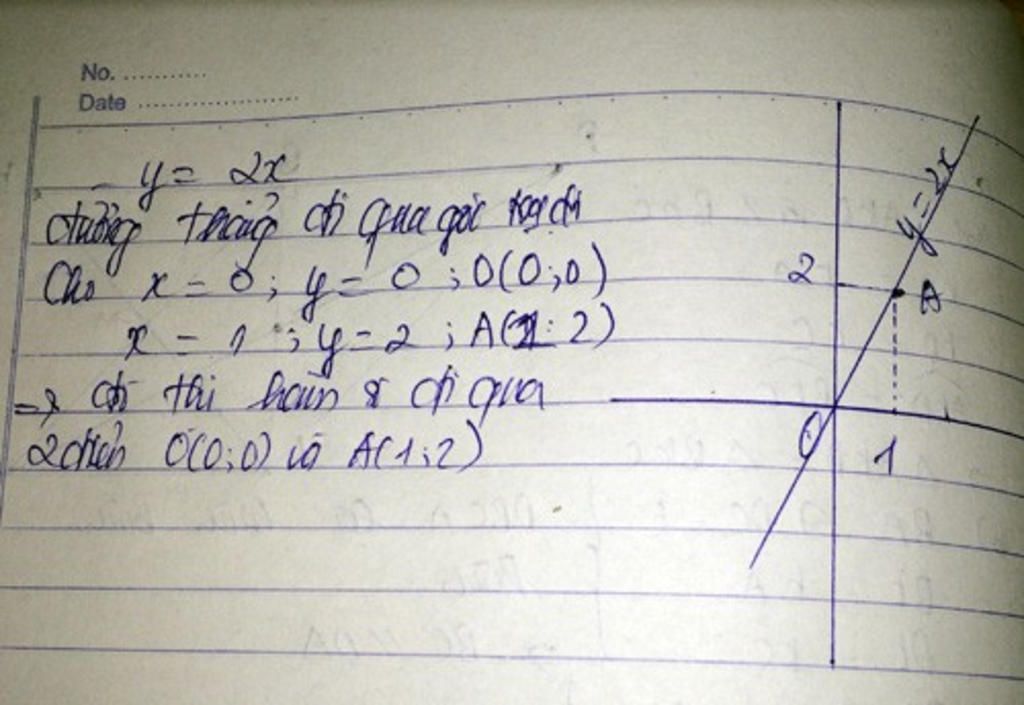 No. ...........
Date ....................
y = 2x
đường thẳng đi qua gốc tọa độ
Cho x = 0 ; y = 0 ; O(0;0)
x = 1 ; y = 2 ; A(1; 2)
=> đồ thị hàm số đi qua
2 điểm O(0;0) và A(1;2)
y = 2x
2
A
O
1